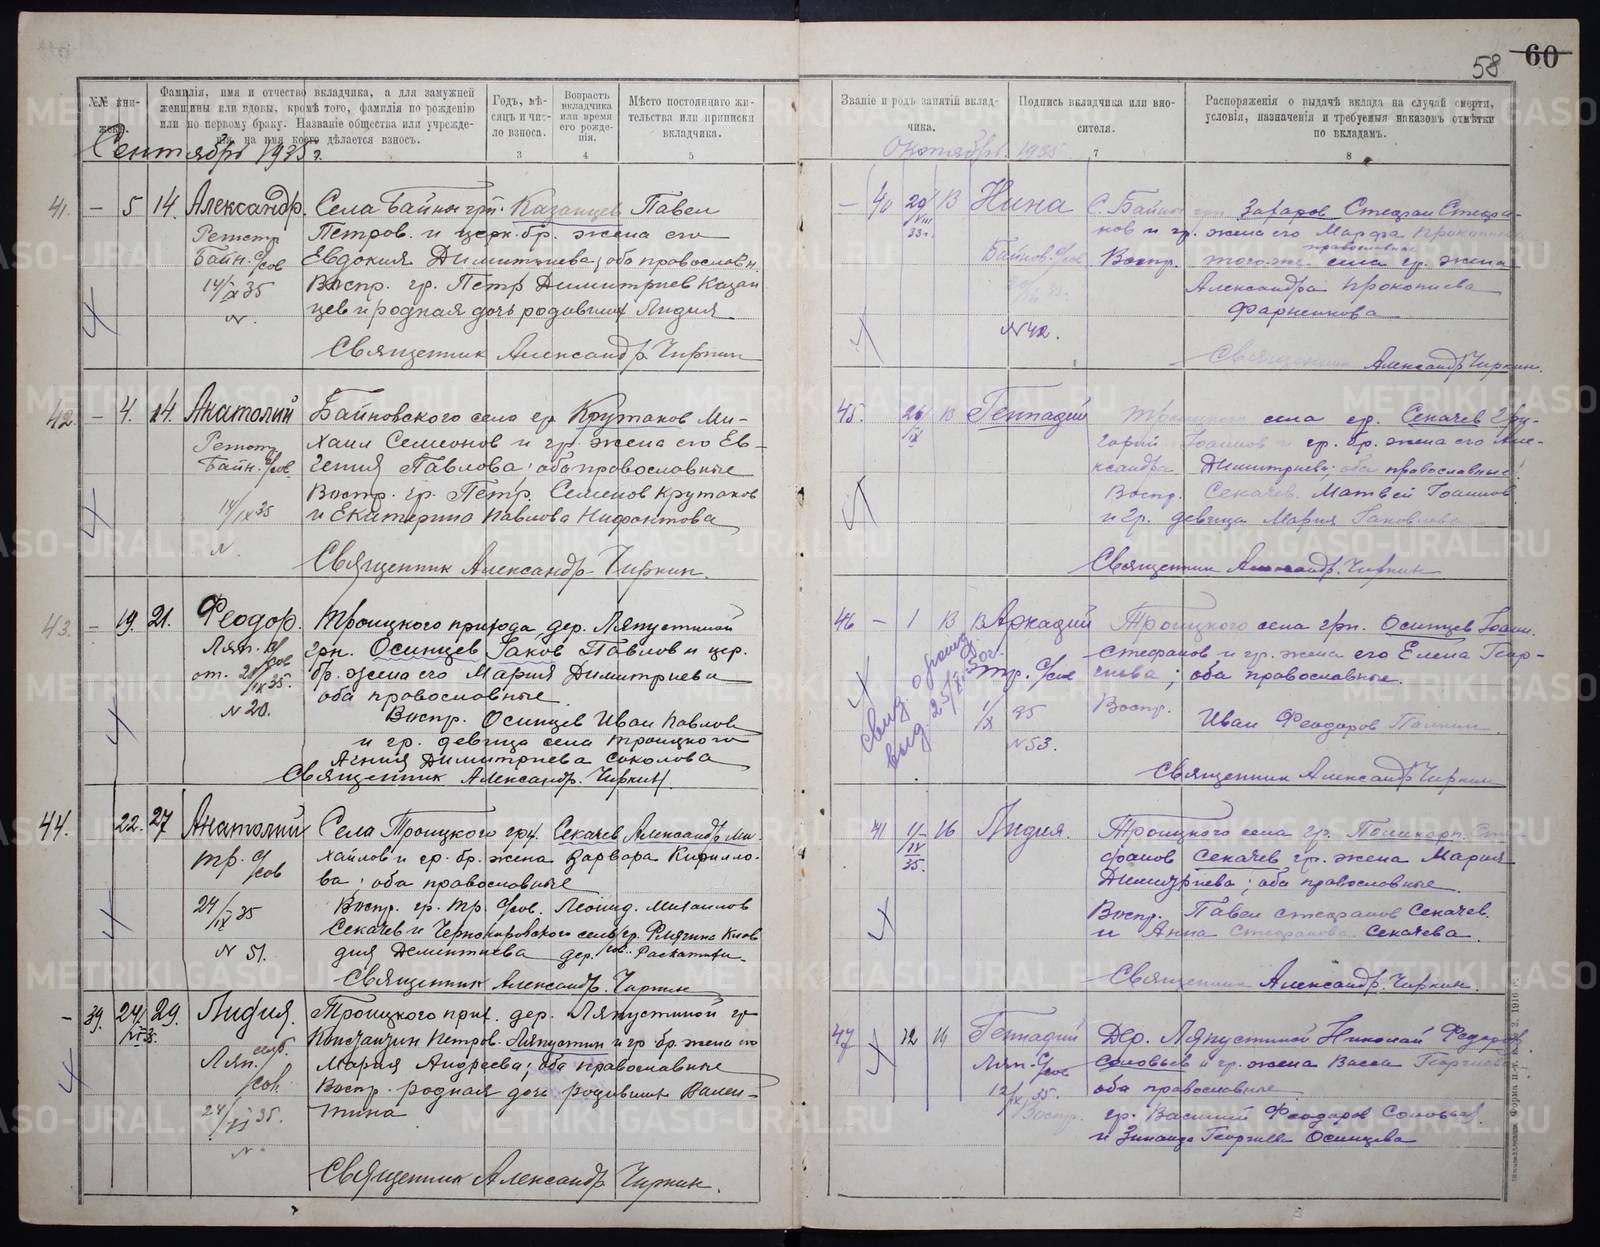 58 60
№№ кни-
жекъ.
Фамилія, имя и отчество вкладчика, а для замужней
женщины или вдовы, кромѣ того, фамилія по рожденію
или по первому браку. Названіе общества или учрежде-
нія, на имя коего дѣлается взносъ.
Годъ, мѣ-
сяцъ и чис-
ло взноса.
3
Возрастъ
вкладчика
или время
его рожде-
нія.
4
Мѣсто постояннаго жи-
тельства или приписки
вкладчика.
5
Сентябрь 1935 г.
41. — 5 14. Александр. Села Байны грн. Казанцев Павел
Регистр Петров. и церк. бр. жена его
Байн. с/сов Евдокия Димитриева, оба православн.
14/IX 35 Воспр. гр. Петр Димитриев Казан
N. цев и родная дочь родивших Лидия
Священник Александр Чиркин
42. — 4. 14. Анатолий Байновского села гр. Крутаков Ми-
Регистр хаил Семенов и гр. жена его Ев-
Байн. с/сов гения Павлова; оба православные
14/IX 35 Воспр. гр. Петр. Семенов Крутаков
N. и Екатерина Павлова Нифонтова
Священник Александр Чиркин.
43. — 19. 21. Феодор. Троицкого прихода, дер. Ляпустиной
Ляп. с/сов грн. Осинцев Яков Павлов и цер.
от. 20/IX 35. бр. жена его Мария Димитриева
N 20. оба православные.
Воспр. Осинцев Иван Павлов
и гр. девица села Троицкого
Агния Димитриева Соколова
Священник Александр. Чиркин.
44. 22. 27 Анатолий Села Троицкого грн. Секачев Александр Ми-
Тр. с/сов хайлов и гр. бр. жена Варвара Кирилло-
ва; оба православные
24/IX 35 Воспр. гр. Тр. с/сов. Леонид. Михаилов
N 51. Секачев и
дия Дементиева дер.
Священник Александр. Чиркин
— 39. 24/VI 35. 29. Лидия. Троицкого прих. дер. Ляпустиной гр
Ляп. Константин Петров. Ляпустин и гр. бр. жена его
с/сов. Мария Андреева; оба православные
Воспр. родная дочь родивших Вален-
N. тина
Священник Александр Чиркин.
Званіе и родъ занятій вклад-
чика.
Подпись вкладчика или вно-
сителя.
7
Распоряженія о выдачѣ вклада на случай смерти,
условія, назначенія и требуемыя наказомъ отмѣтки
по вкладамъ.
8
Октябрь. 1935
— 40 29/VIII 33г. 13 Нина С. Байны грн Захаров Стефан Стефа-
нов и гр. жена его Марфа Прокопиева
православные
Байнов. с/сов Воспр. того же села гр. жена
Александра Прокопиева
N 42.
Священник Александр Чиркин.
45. 26/IX 13 Геннадий Троицкого села гр. Секачев Гри-
горий Иоаннов и гр. бр. жена его Але-
ксандра Димитриева; оба православные.
Воспр. Секачев Матвей Иоаннов
и гр. девица Мария Яковлева
Священник Александр. Чиркин
46 — 1 13 Аркадий Троицкого села грн. Осинцев Иоанн.
Стефанов и гр. жена его Елена Геор-
Тр. с/сов гиева; оба православные.
1/X 35 Воспр.
Иван Феодоров
N 53.
Священник Александр Чиркин
41 1/IX 35. 16 Лидия. Троицкого села гр. Поликарп. Сте-
фанов Секачев гр. жена Мария
Димитриева; оба православные.
Воспр. Павел Стефанов Секачев.
и Анна Стефанова Секачева.
Священник Александр. Чиркин.
47 12 14 Геннадий Дер. Ляпустиной Николай Федоров
Ляп. с/сов Соловьев и гр. жена Васса Георгиева
12/X 35. оба православные
Воспр. гр. Василий Феодоров Соловьев.
и Зинаида Георгиева Осинцева
METRIKI.GASO-URAL.RU